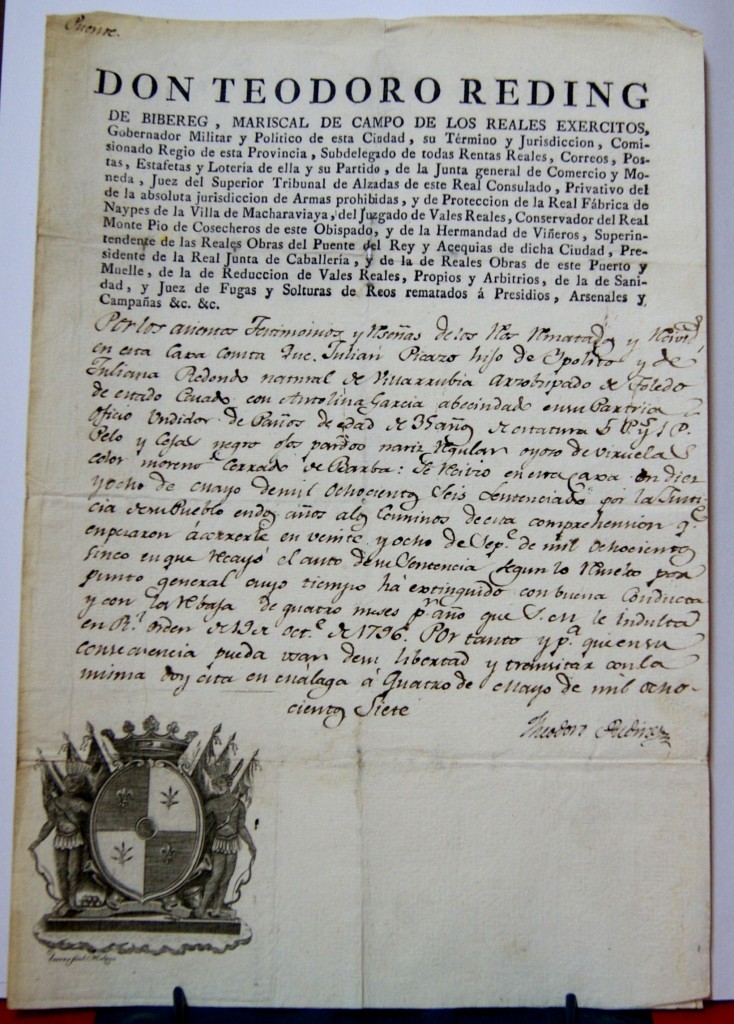 Puente.
DON TEODORO REDING
DE BIBEREG, MARISCAL DE CAMPO DE LOS REALES EXERCITOS,
Gobernador Militar y Politico de esta Ciudad, su Término y Jurisdiccion, Comi-
sionado Regio de esta Provincia, Subdelegado de todas Rentas Reales, Correos, Pos-
tas, Estafetas y Lotería de ella y su Partido, de la Junta general de Comercio y Mo-
neda, Juez del Superior Tribunal de Alzadas de este Real Consulado, Privativo del
de la absoluta jurisdiccion de Armas prohibidas, y de Proteccion de la Real Fábrica de
Naypes de la Villa de Macharaviaya, del Juzgado de Vales Reales, Conservador del Real
Monte Pio de Cosecheros de este Obispado, y de la Hermandad de Viñeros, Superin-
tendente de las Reales Obras del Puente del Rey y Acequias de dicha Ciudad, Pre-
sidente de la Real Junta de Caballería, y de la de Reales Obras de este Puerto y
Muelle, de la de Reduccion de Vales Reales, Propios y Arbitrios, de la de Sani-
dad, y Juez de Fugas y Solturas de Reos rematados á Presidios, Arsenales y
Campañas &c. &c.
Por los asientos Testimonios y Reseñas de los Reos Rematados y Recivid.
en esta Caxa consta que Julian Picazo hijo de Ypolito y de
Juliana Redondo natural de Villarrubia Arzobispado de Toledo
de estado Casado con Antolina Garcia abecindad en su Partria
oficio Vndidor de Paños de edad de 35 años de estatura 5 P.s y 1 P.
Pelo y Cejas negro ojos pardos nariz regular oyoso de viruelas
color moreno Cerrado de Barba: Se Recivio en esta caxa en diez
y ocho de mayo de mil ochocientos Seis Sentenciado por la Justi-
cia de su Pueblo en dos años a los Caminos de esta comprehension q.e
empezaron á correrle en veinte y ocho de Sep.e de mil ochocientos
sinco en que Recayó el auto de su Sentencia Segun lo Resuelto por
punto general cuyo tiempo há extinguido con buena Conducta
y con la Rebaja de quatro meses p.r año que S.M. le indulta
en R.l orden de 19 de Oct.e de 1796. Por tanto y p.a que en su
consecuencia pueda usar de su libertad y transitar con la
misma doy esta en Málaga á Quatro de Mayo de mil ocho-
cientos Siete
Theodoro Reding